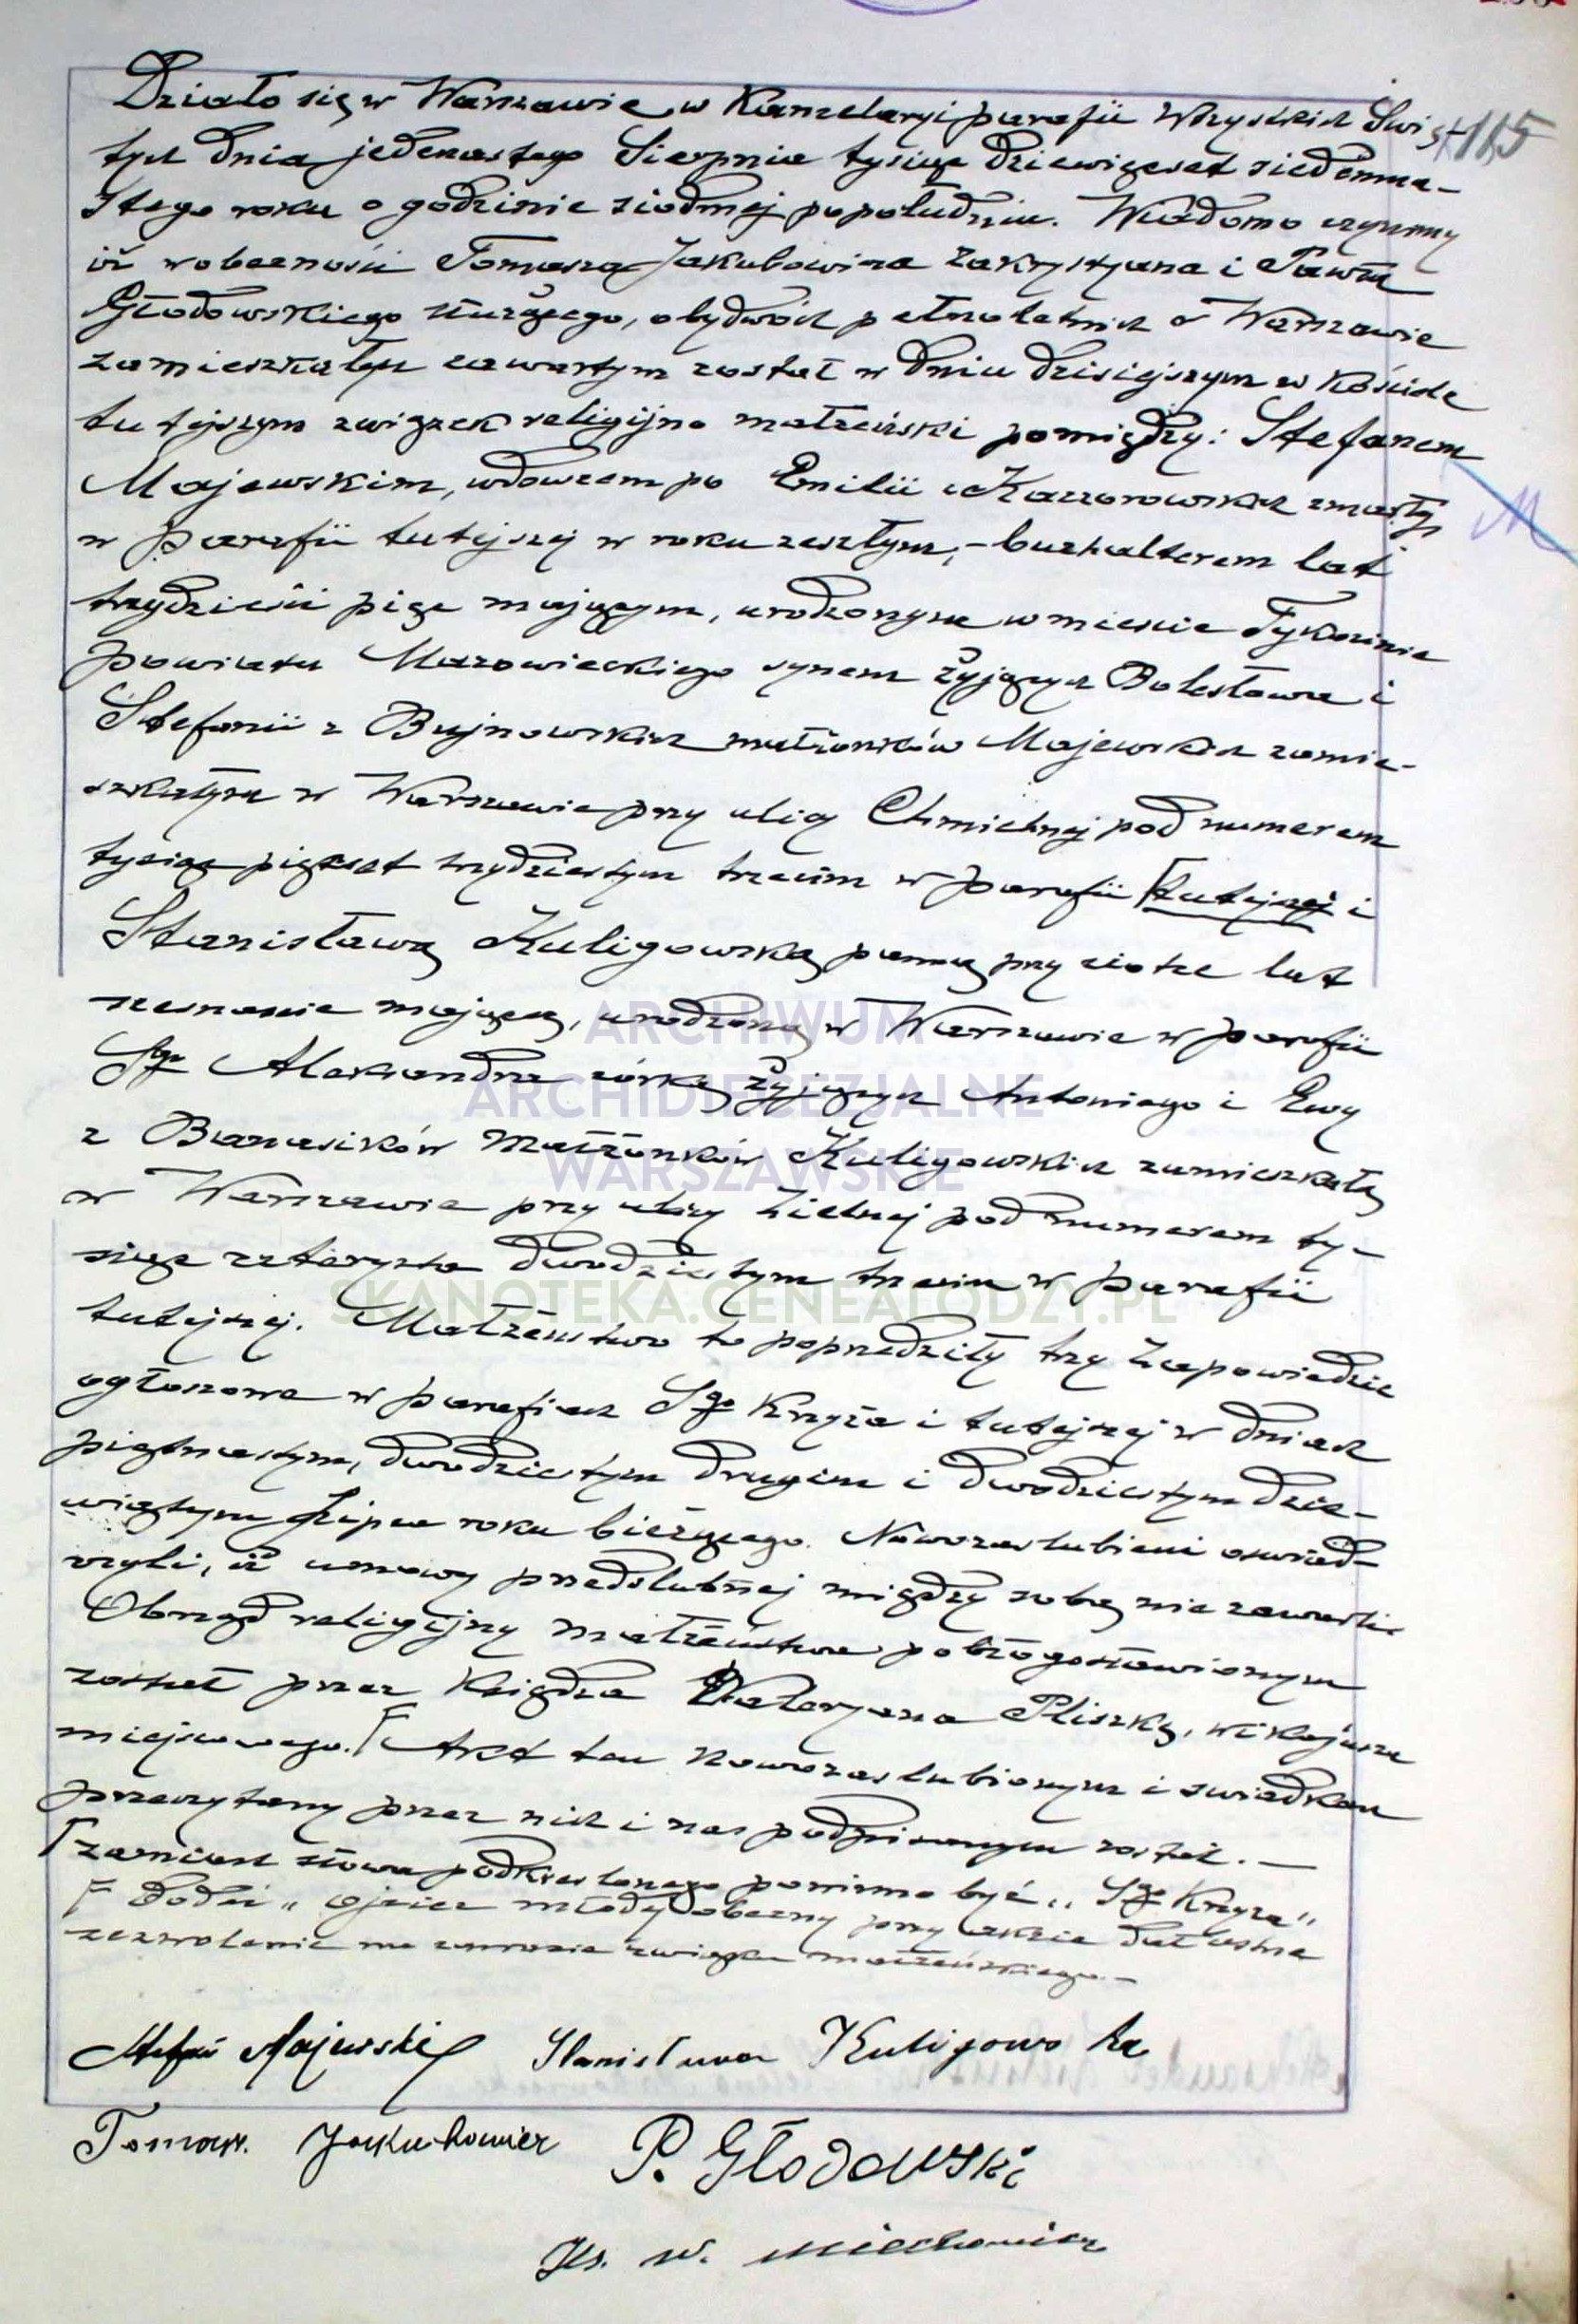 115
Działo się w Warszawie w Kancelaryi parafii Wszystkich Świę-
tych dnia jedenastego Sierpnia tysiąc dziewięćset siedemna-
stego roku o godzinie siódmej popołudniu. Wiadomo czynimy
iż w obecności Tomasza Jakubowicza zakrystyana i Pawła
Głodowskiego służącego, obydwóch pełnoletnich w Warszawie
zamieszkałych zawartym został w dniu dzisiejszym w kościele
tutejszym związek religijno małżeński pomiędzy: Stefanem
Majewskim, wdowcem po Emilii z Kaczorowskich zmarłej
M
w parafii tutejszej w roku zeszłym, - buchalterem lat
trzydzieści pięć mającym, urodzonym w mieście Tykocinie
powiatu Mazowieckiego synem żyjących Bolesława i
Stefanii z Bujnowskich małżonków Majewskich zamie-
szkałym w Warszawie przy ulicy Chmielnej pod numerem
tysiąc pięćset trzydziestym trzecim w parafii tutejszej i
Stanisławą Kuligowską panną przy ojcu lat
szesnaście mającą, urodzoną w Warszawie w parafii
Sgo Aleksandra córką żyjących Antoniego i Ewy
z Banasików małżonków Kuligowskich zamieszkałą
w Warszawie przy ulicy Zielnej pod numerem ty-
siąc czterysta dwudziestym trzecim w parafii
tutejszej. Małżeństwo to poprzedziły trzy Zapowiedzie
ogłoszone w parafiach Sgo Krzyża i tutejszej w dniach
piętnastym, dwudziestym drugim i dwudziestym dzie-
wiątym Lipca roku bieżącego. Nowozaślubieni oświad-
czyli, iż umowy przedślubnej między sobą nie zawarli.
Obrzęd religijny małżeństwa pobłogosławionym
został przez Księdza Waleryana Pliszkę, wikaryusza
miejscowego. Akt ten Nowozaślubionym i świadkom
przeczytany przez nich i nas podpisanym został. —
zamiast słowa podkreślonego powinno być „Sgo Krzyża"
Dodać „ojciec młody obecny przy akcie dał ustne
zezwolenie na zawarcie związku małżeńskiego. —
Stefan Majewski Stanisława Kuligowska
Tomasz. Jakubowicz P. Głodowski
Ks. W.
ARCHIWUM
ARCHIDIECEZJALNE
WARSZAWSKIE
SKANOTEKA.GENEALODZY.PL